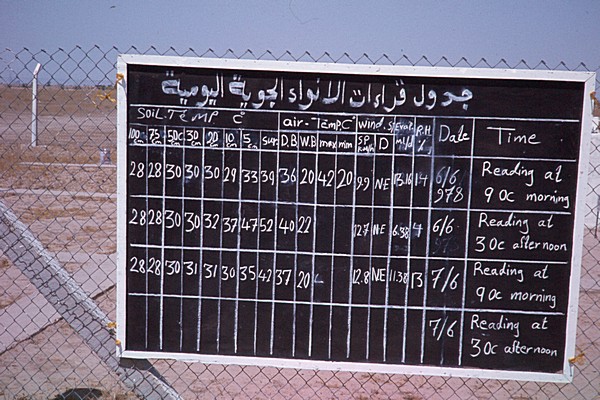 جدول قراءات الانواء الجوية اليومية
SOIL TEMP C°
air-Temp C° wind.S Evap. R.H Date Time
100 cm 75 cm 50 cm 30 cm 20 cm 10 cm 5 cm sur. D.B W.B max min SP km/h D ml/d %
28 28 30 30 30 29 33 39 36 20 42 20 9.9 NE 13.16 14 6/6 978 Reading at 9 oc morning
28 28 30 30 32 37 47 52 40 22 12.7 NE 6.38 4 6/6 Reading at 3 oc afternoon
28 28 30 31 31 30 35 42 37 20 12.8 NE 11.38 13 7/6 Reading at 9 oc morning
7/6 Reading at 3 oc afternoon